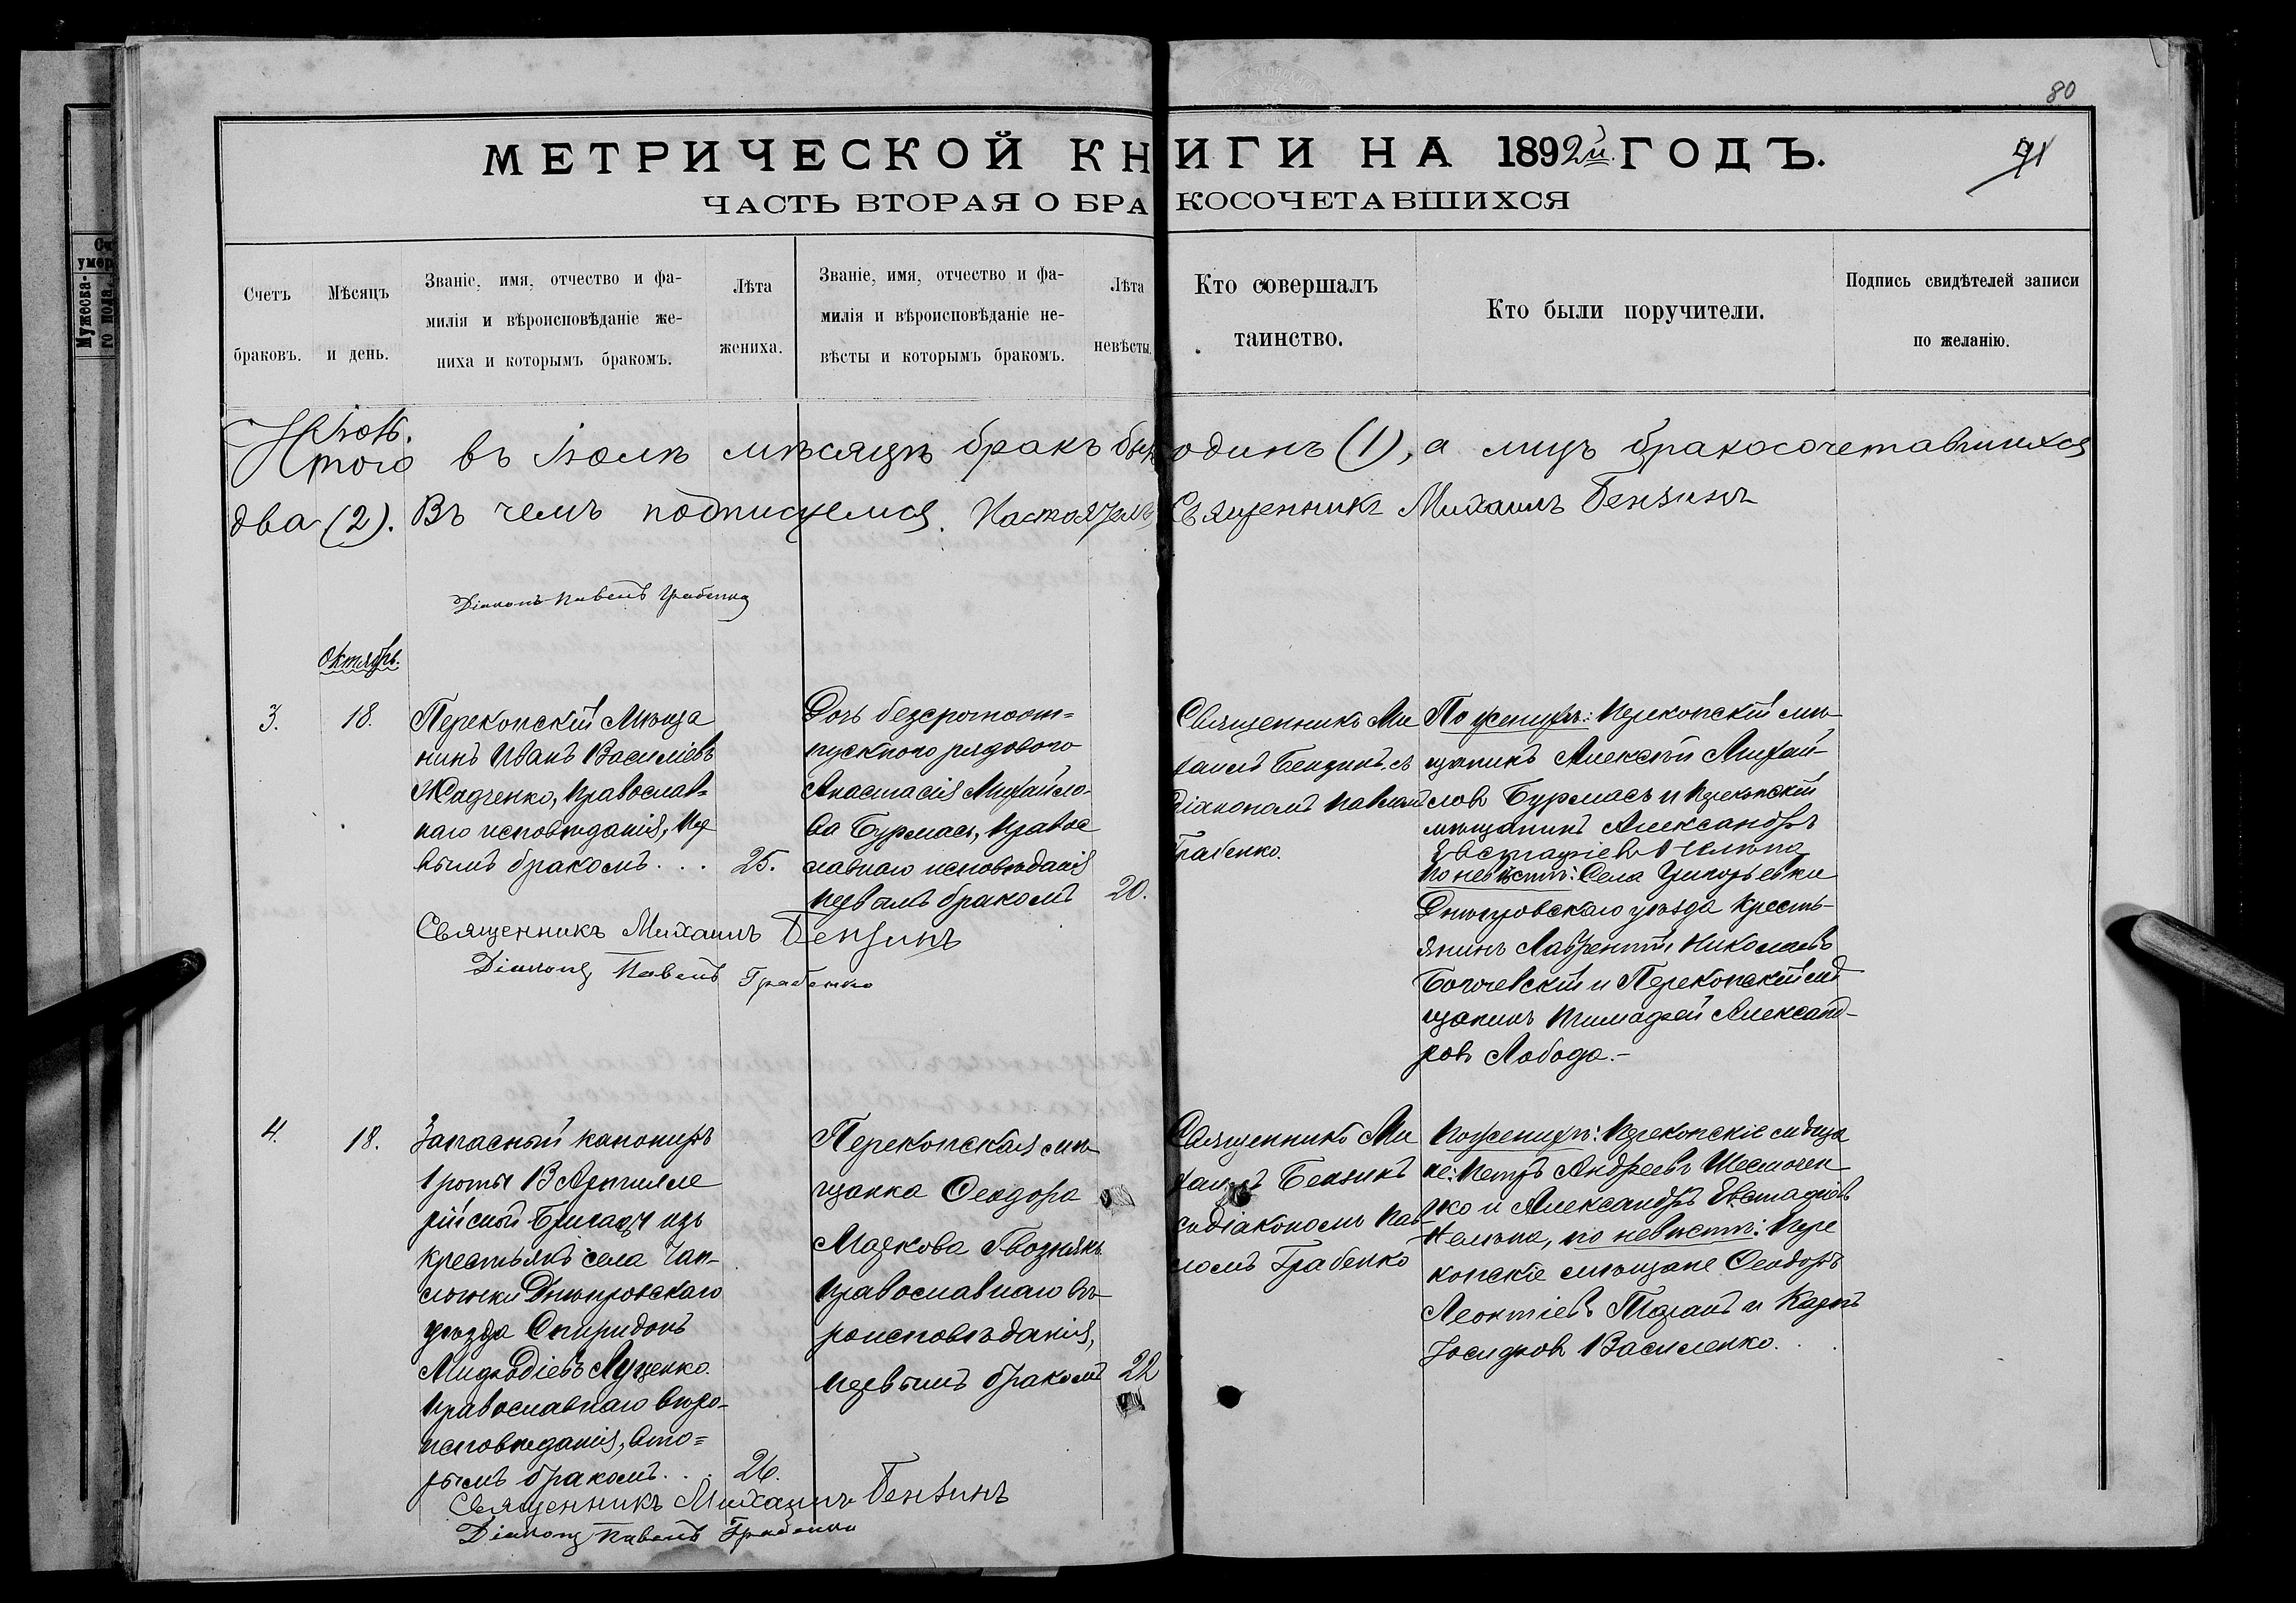 80
МЕТРИЧЕСКОЙ КНИГИ НА 1892й ГОДЪ.
91
ЧАСТЬ ВТОРАЯ О БРАКОСОЧЕТАВШИХСЯ
Счетъ
браковъ.
Мѣсяцъ
и день.
Званіе, имя, отчество и фа-
милія и вѣроисповѣданіе же-
ниха и которымъ бракомъ.
Лѣта
жениха.
Званіе, имя, отчество и фа-
милія и вѣроисповѣданіе не-
вѣсты и которымъ бракомъ.
Лѣта
невѣсты.
Кто совершалъ
таинство.
Кто были поручители.
Подпись свидѣтелей записи
по желанію.
Итого въ Іюлѣ мѣсяцѣ бракъ былъ одинъ (1), а лицъ бракосочетавшихся
два (2). Въ чемъ подписуемся. Настоятель Священникъ Михаилъ Бензинъ
Діаконъ Павелъ Грабенко
Октябрь.
3.
18.
Перекопскій Мѣща
нинъ Иванъ Василіевъ
Жадченко, Православ=
наго исповѣданія, Пер
вымъ бракомъ. . .
25.
Дочь безсрочноот=
пускного рядового
Анастасія Михайло-
ва Бурмасъ, Правос
лавнаго исповѣданія
первымъ бракомъ
20.
Священникъ Ми
хаилъ Бензинъ съ
Діакономъ Павломъ
Грабенко.
По женихѣ: Перекопскій мѣ-
щанинъ Алексѣй Михай-
ловъ Бурмасъ и Перекопскій
мѣщанинъ Александръ
Евстафіевъ Нелѣпа
По невѣстѣ: Села Григорьевки
Днѣпровскаго уѣзда кресть-
янинъ Лаврентій Николаевъ
Богочевскій и Перекопскій мѣ
щанинъ Тимофей Александ-
ровъ Лобода.-
Священникъ Михаилъ Бензинъ
Діаконъ Павелъ Грабенко
4.
18.
Запасный канониръ
1 роты 13 Артилле
рійской Бригады изъ
крестьянъ села Чап-
лынки Днѣпровскаго
уѣзда Спиридонъ
Мифодіевъ Луценко.
Православнаго вѣро-
исповѣданія, вто=
рымъ бракомъ. . .
26.
Перекопская мѣ-
щанка Ѳеодора
Маркова Гвознякъ
Православнаго вѣ-
роисповѣданія,
первымъ бракомъ
22
Священникъ Ми
хаилъ Бензинъ
съ діакономъ Пав-
ломъ Грабенко
По женихѣ: Перекопскіе мѣща
не: Петръ Андреевъ Шесточен
ко и Александръ Евстафіевъ
Нелѣпа, по невѣстѣ: Пере
копскіе мѣщане Ѳеодоръ
Леонтіевъ Таранъ и Карпъ
Іосифовъ Василенко. . .
Священникъ Михаилъ Бензинъ
Діаконъ Павелъ Грабенко